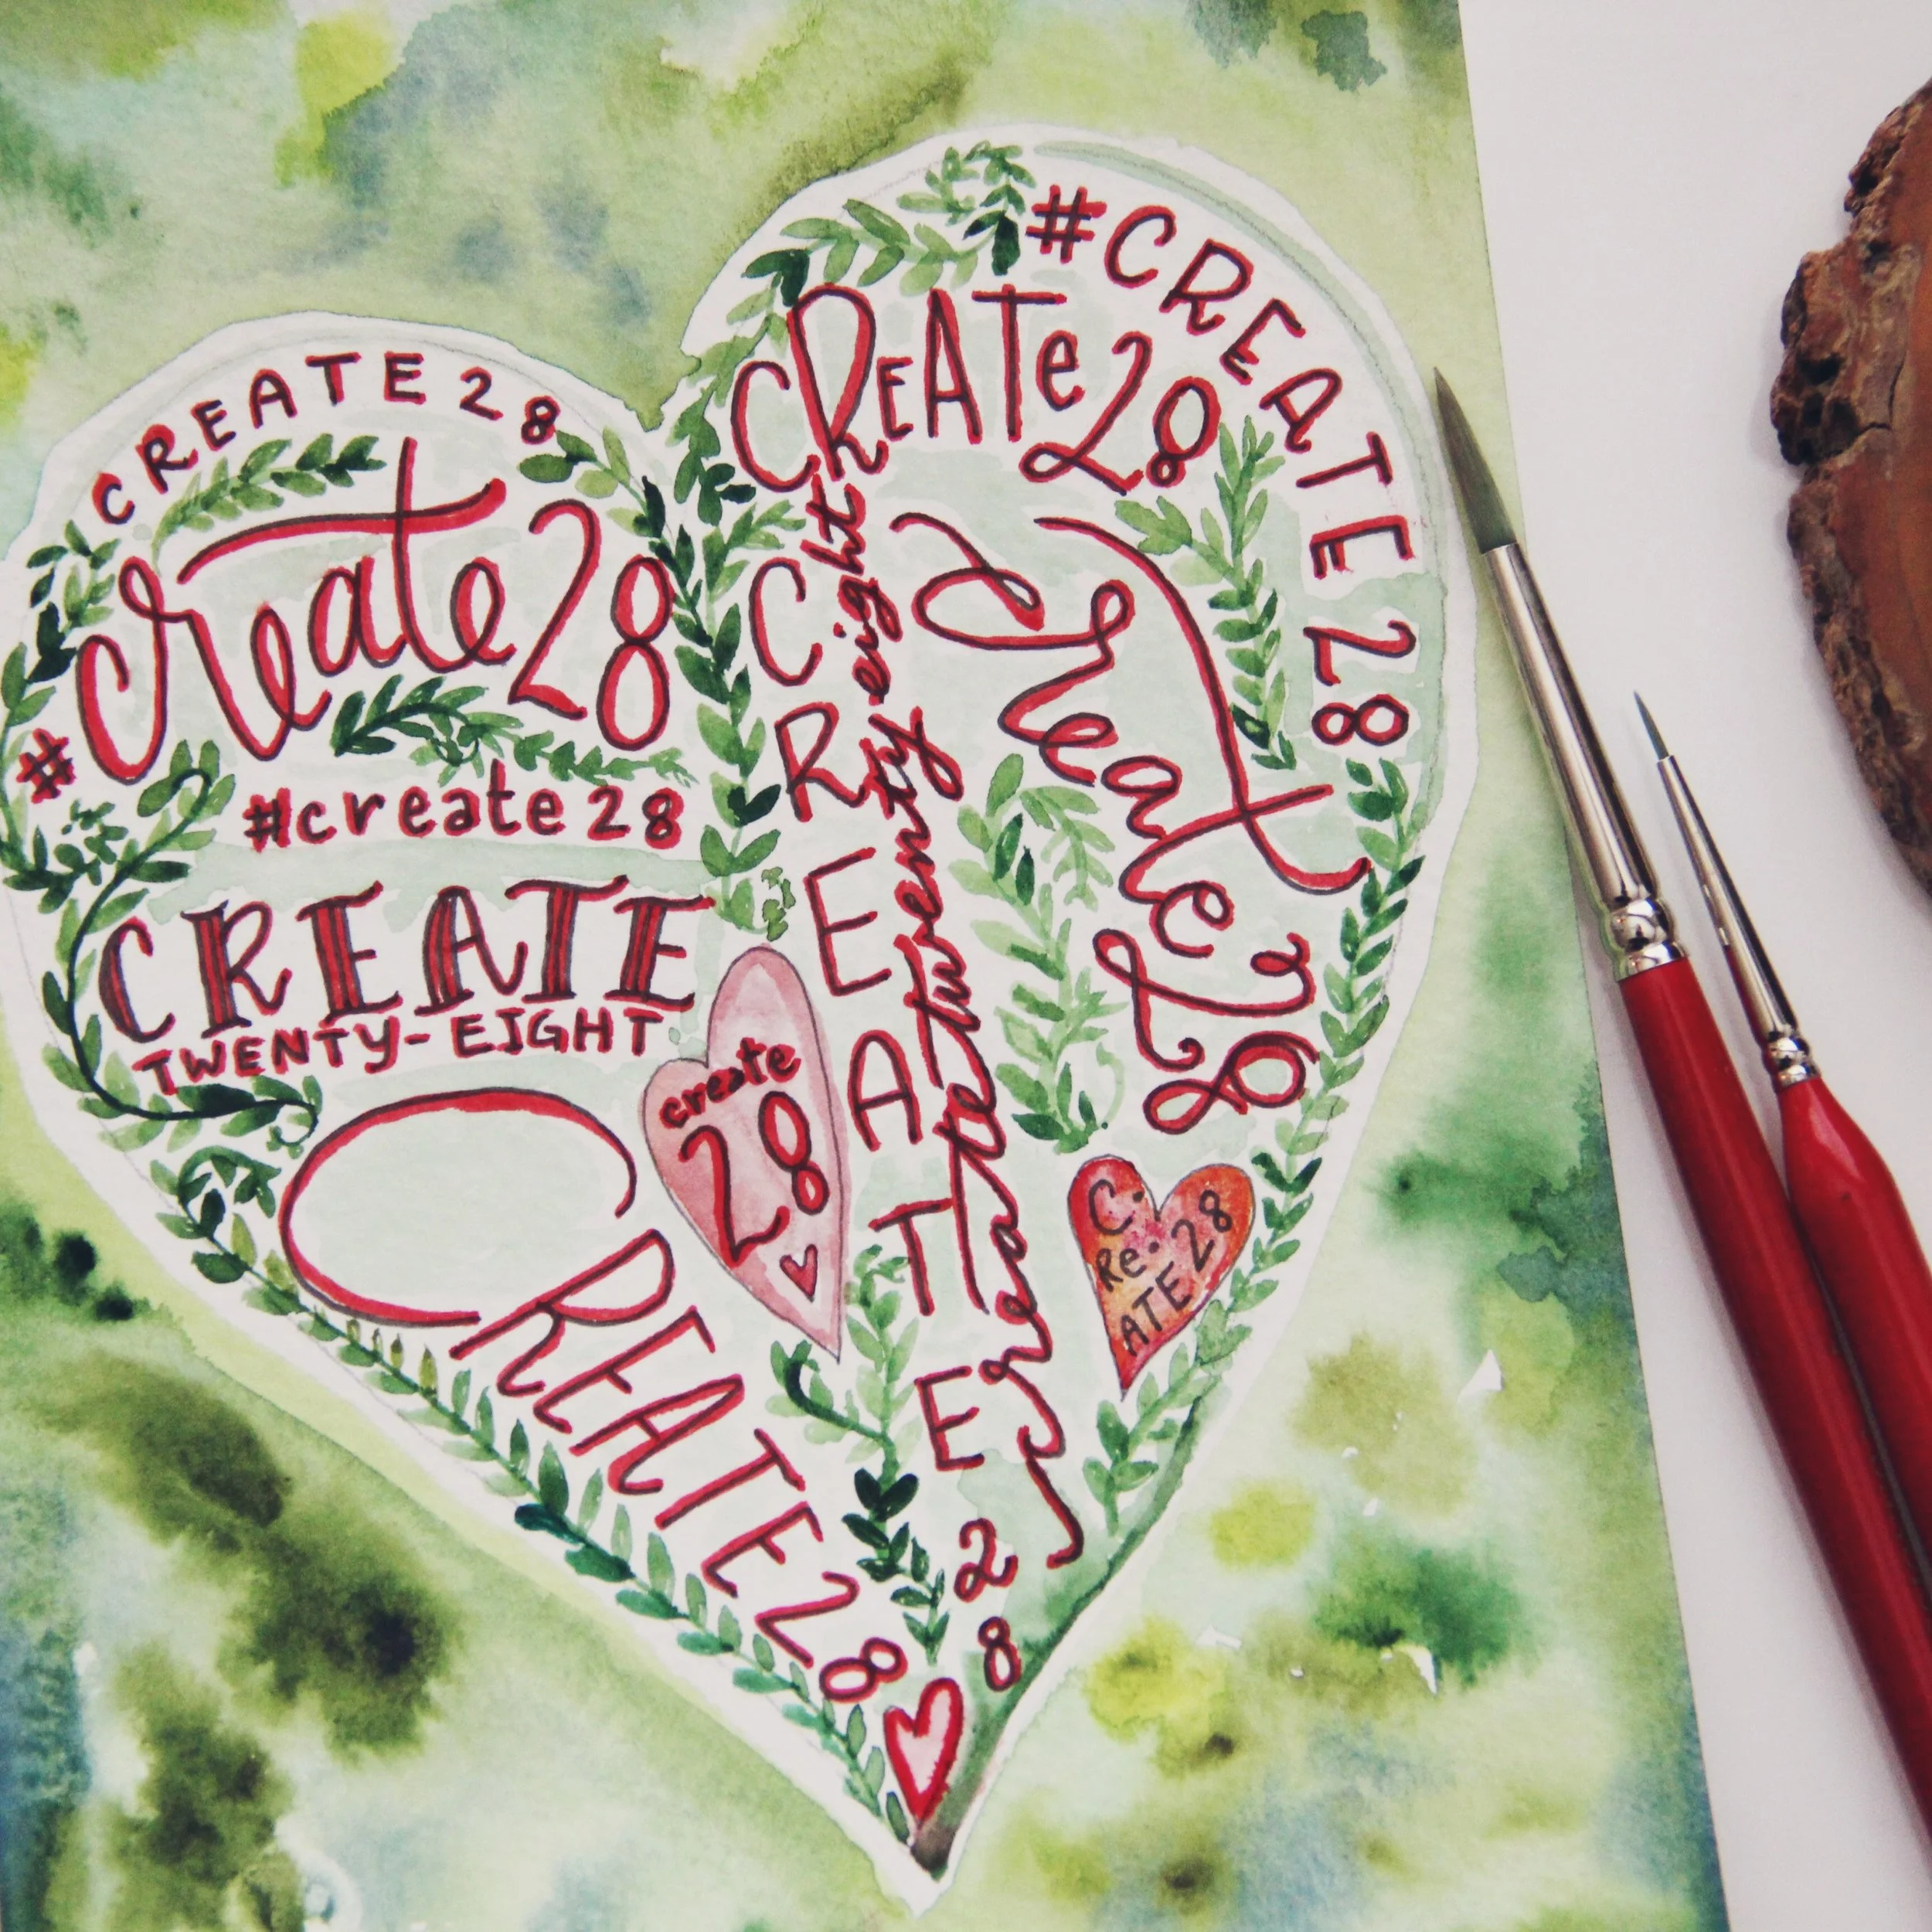 CREATE 28
#create28
#create 28
CREATE
TWENTY-EIGHT
CREATE28
create
28
#CREATE 28
CREATe28
CREATE 28
create twenty eight
create28
C.
Re.
ATE 28